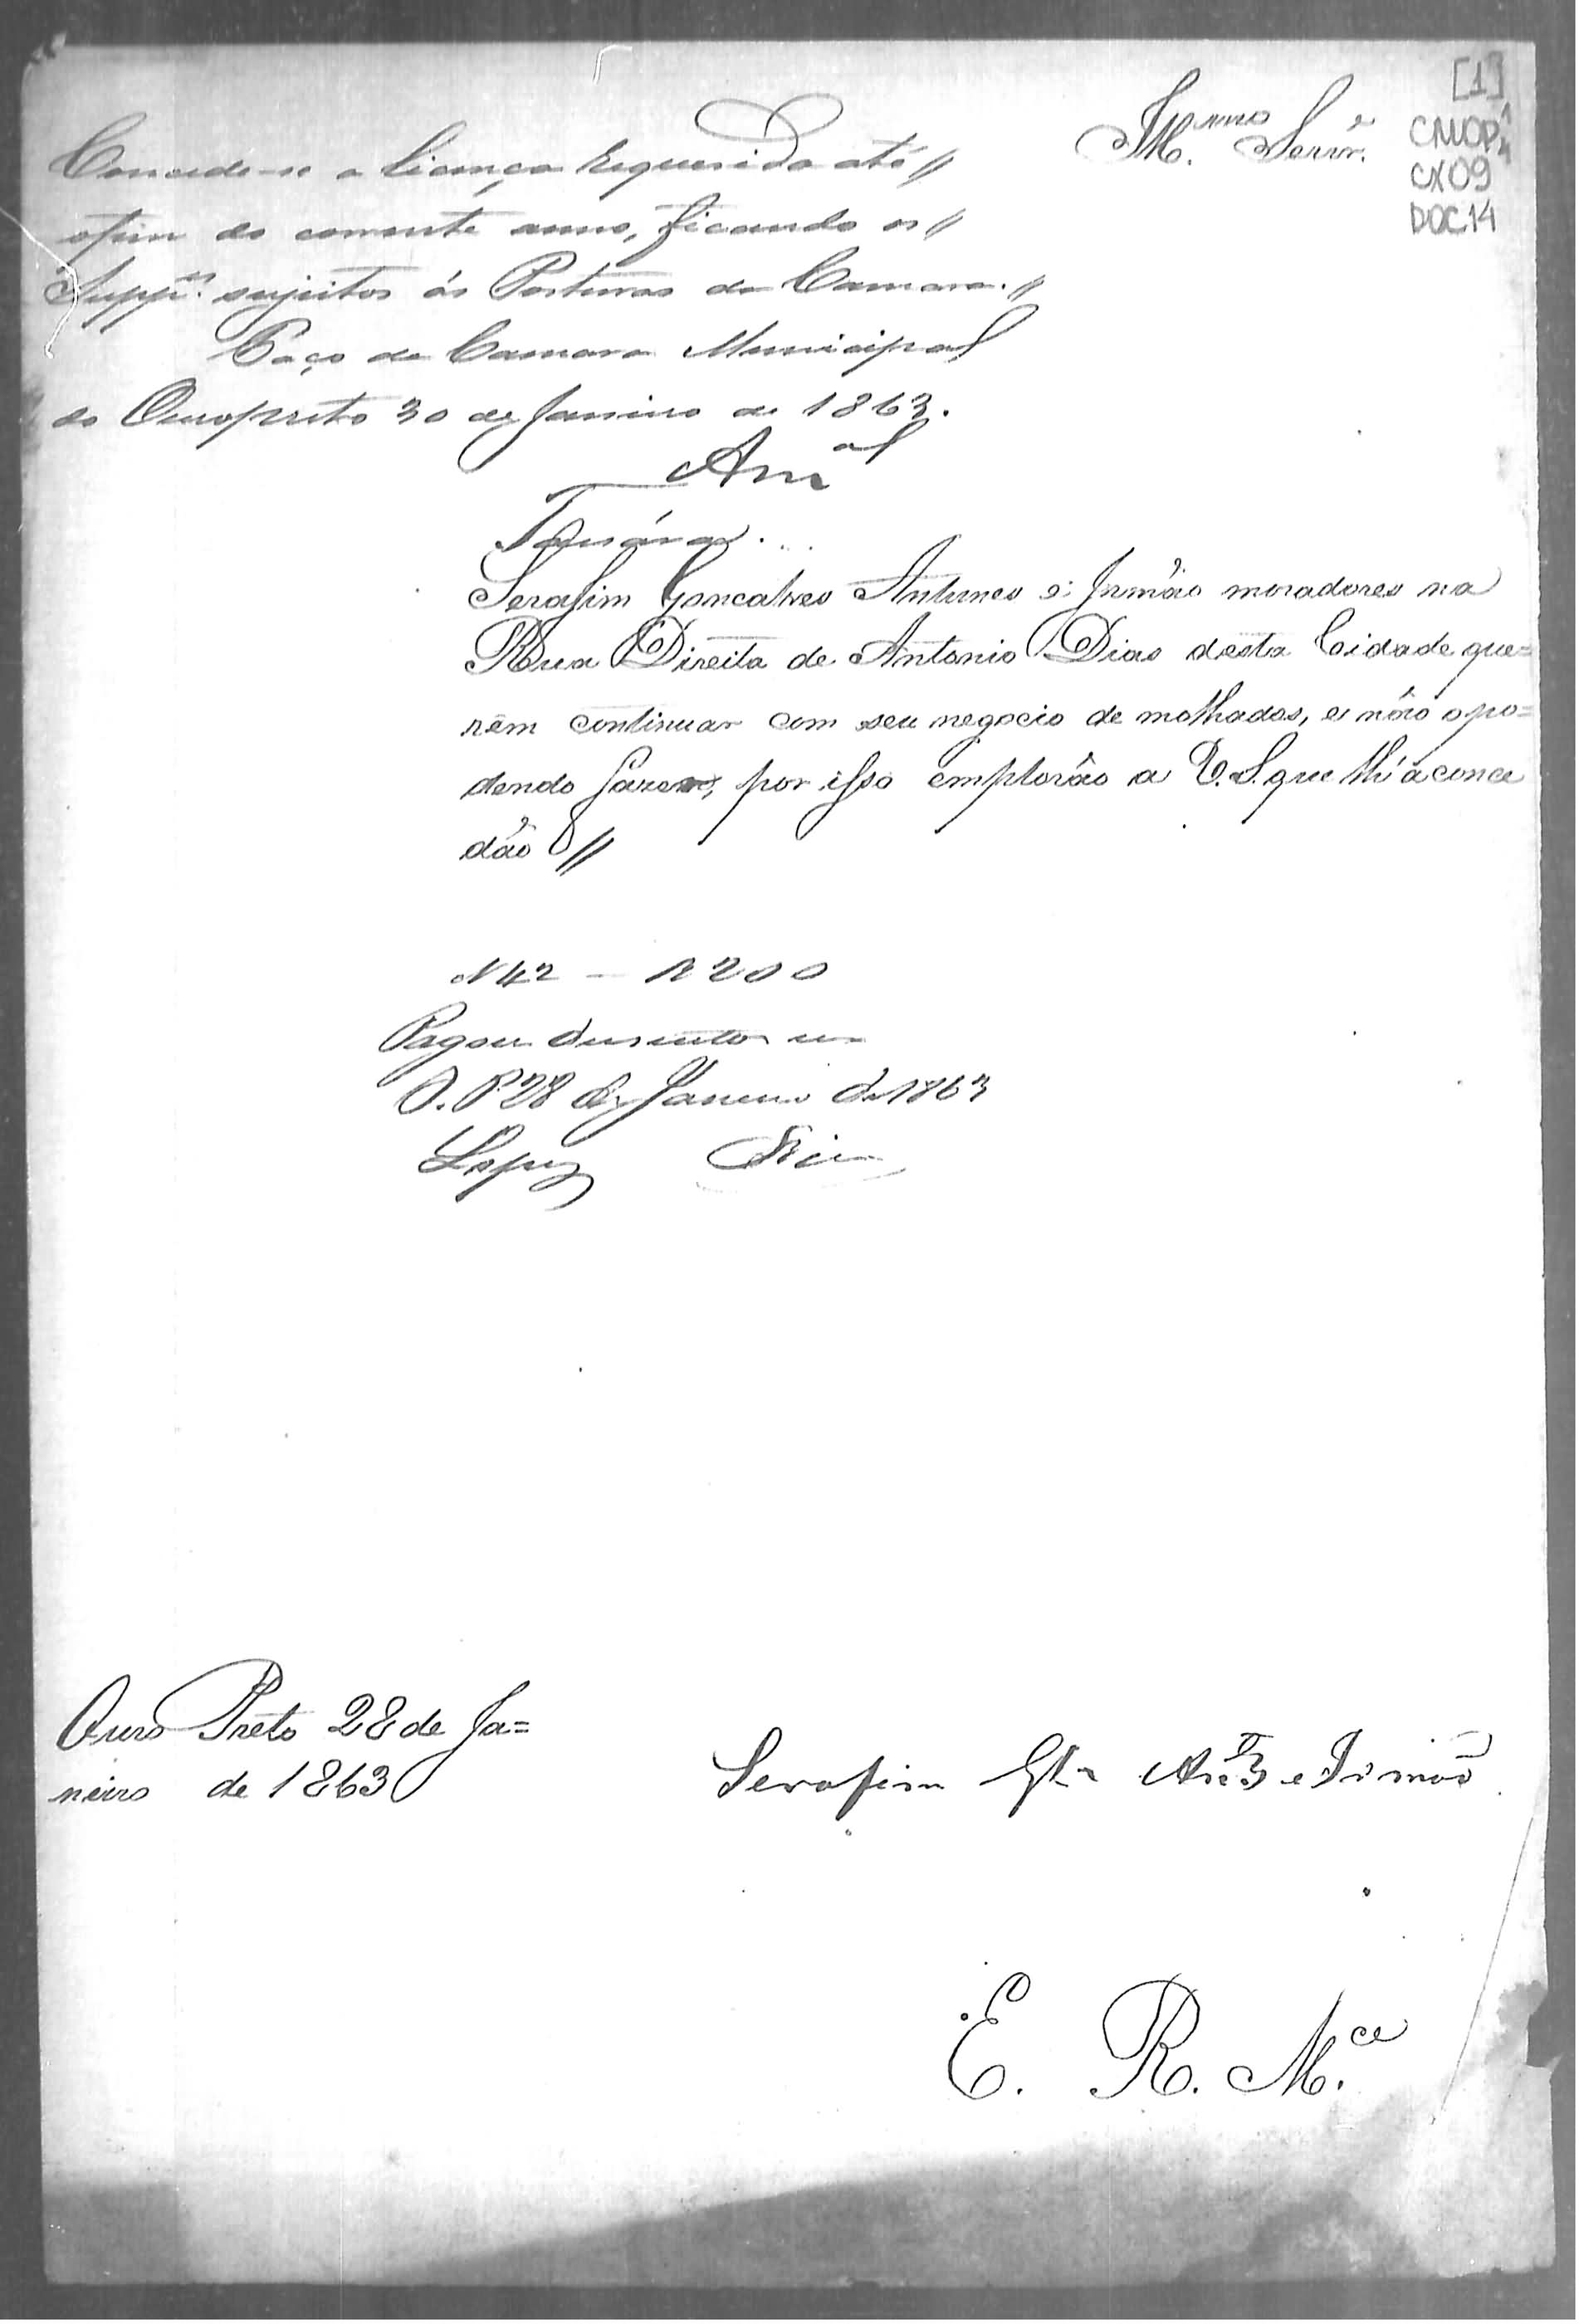 [1]
CMOP
CX09
DOC14
Ill.mo Senr.
Concede-se a licença requerida até //
ofim do corrente anno, ficando os //
Supp.es sujeitos ás Posturas da Camara. //
Paço da Camara Municipal
do Ouropreto 30 de Janeiro de 1863.
Serafim Goncalves Antunes e Irmão moradores na
Rua Direita de Antonio Dias desta Cidade que=
rem continuar com seu negocio de molhados, e não opo=
dendo fazer, por isso emplorão a V.S. que lh'a conce
dão //
N 42 — R 200
Pagou dusentos rs
O. P. 28 de Janeiro de 1863
Lopes
Ouro Preto 28 de Ja=
neiro de 1863
Serafim Glz Antes e Irmão
E. R. M.ce